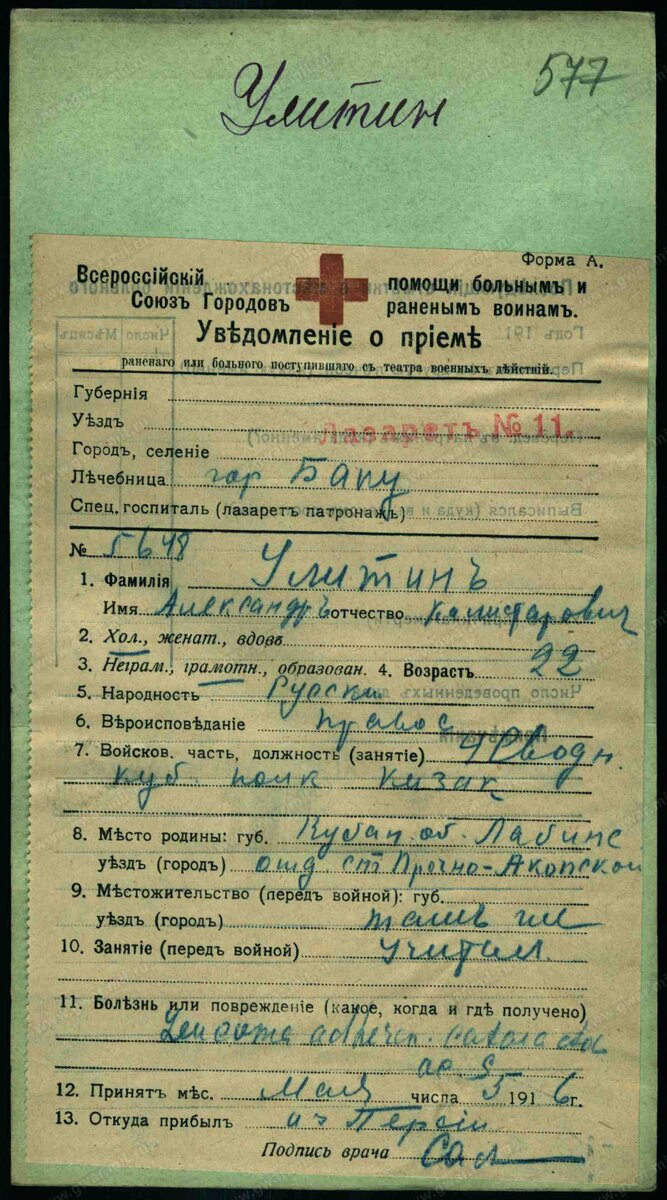 577
Улитин
Форма А.
Всероссійскій
Союзъ Городовъ
помощи больнымъ и
раненымъ воинамъ.
Увѣдомленіе о пріемѣ
раненаго или больного поступившаго съ театра военныхъ дѣйствій.
Губернія
Уѣздъ
Лазаретъ № 11.
Городъ, селеніе
Лѣчебница гор Баку
Спец. госпиталь (лазаретъ патронажъ)
№ 5648
1. Фамилія Улитинъ
Имя Александръ отчество
2. Хол., женат., вдовъ
3. Неграм., грамотн., образован. 4. Возрастъ 22
5. Народность Руски
6. Вѣроисповѣданіе правос
7. Войсков. часть, должность (занятіе) 4 Сводн.
куб. полк казак
8. Мѣсто родины: губ. Кубан. об. Лабинс
уѣздъ (городъ) отд ст Прочно-Акопской
9. Мѣстожительство (передъ войной): губ.
уѣздъ (городъ)
10. Занятіе (передъ войной) учител
11. Болѣзнь или поврежденіе (какое, когда и гдѣ получено)
12. Принятъ мѣс. Мая числа 5 1916 г.
13. Откуда прибылъ из Персіи
Подпись врача